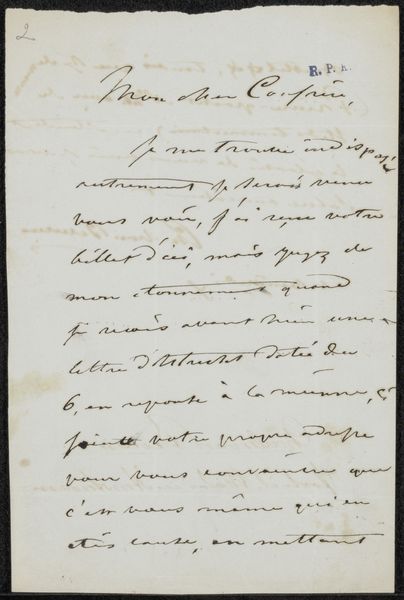 2
R. P. K.
Mon cher Confrère,
Je me trouve indisposé
autrement je serois venu
vous voir, j'ai reçu votre
billet d'ici, mais jugez de
mon étonnement quand
je reçois avant hier une
lettre d'Utrecht datée du
6, en reponse à la mienne,
votre propre adresse
pour vous convaincre que
c'est vous même qui en
êtes cause, en mettant